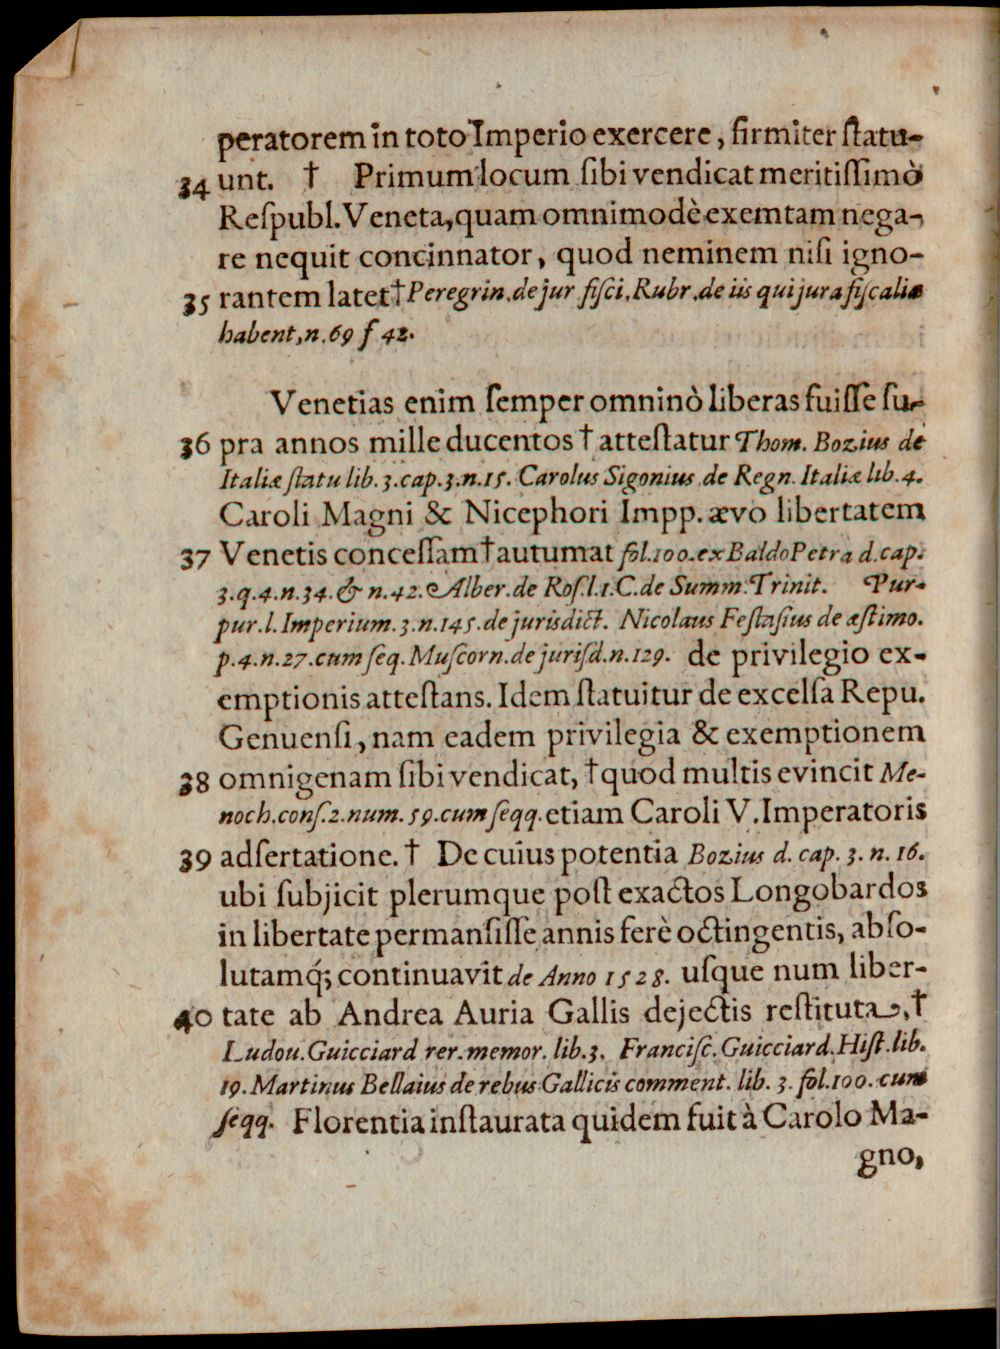 peratorem in toto Imperio exercere, firmiter ſtatu-
34 unt. † Primum locum ſibi vendicat meritiſſimò
Reſpubl. Veneta, quam omnimodè exemtam nega-
re nequit concinnator, quod neminem niſi igno-
35 rantem latet † Peregrin. de jur fiſci, Rubr. de iis qui jura fiſcalia
habent, n. 69 f 42.
Venetias enim ſemper omninò liberas fuiſſe ſu-
36 pra annos mille ducentos † atteſtatur Thom. Bozius de
Italiæ ſtatu lib. 3. cap. 3. n. 15. Carolus Sigonius de Regn. Italiæ lib. 4.
Caroli Magni & Nicephori Impp. ævo libertatem
37 Venetis conceſſam † autumat fol. 100. ex Baldo Petra d. cap.
3. q. 4. n. 34. & n. 42. Alber. de Roſ. l. 1. C. de Summ. Trinit. Pur-
pur. l. Imperium. 3. n. 145. de jurisdict. Nicolaus Feſtaſius de æſtimo.
p. 4. n. 27. cum ſeq. Muſcorn. de juriſd. n. 129. de privilegio ex-
emptionis atteſtans. Idem ſtatuitur de excelſa Repu.
Genuenſi, nam eadem privilegia & exemptionem
38 omnigenam ſibi vendicat, † quod multis evincit Me-
noch. conſ. 2. num. 59. cum ſeqq. etiam Caroli V. Imperatoris
39 adſertatione. † De cuius potentia Bozius d. cap. 3. n. 16.
ubi ſubjicit plerumque poſt exactos Longobardos
in libertate permanſiſſe annis ferè octingentis, abſo-
lutamq́; continuavit de Anno 1528. uſque num liber-
40 tate ab Andrea Auria Gallis dejectis reſtituta, †
Ludou. Guicciard rer. memor. lib. 3. Franciſc. Guicciard. Hiſt. lib.
19. Martinus Bellaius de rebus Gallicis comment. lib. 3. fol. 100. cum
ſeqq. Florentia inſtaurata quidem fuit à Carolo Ma-
gno,